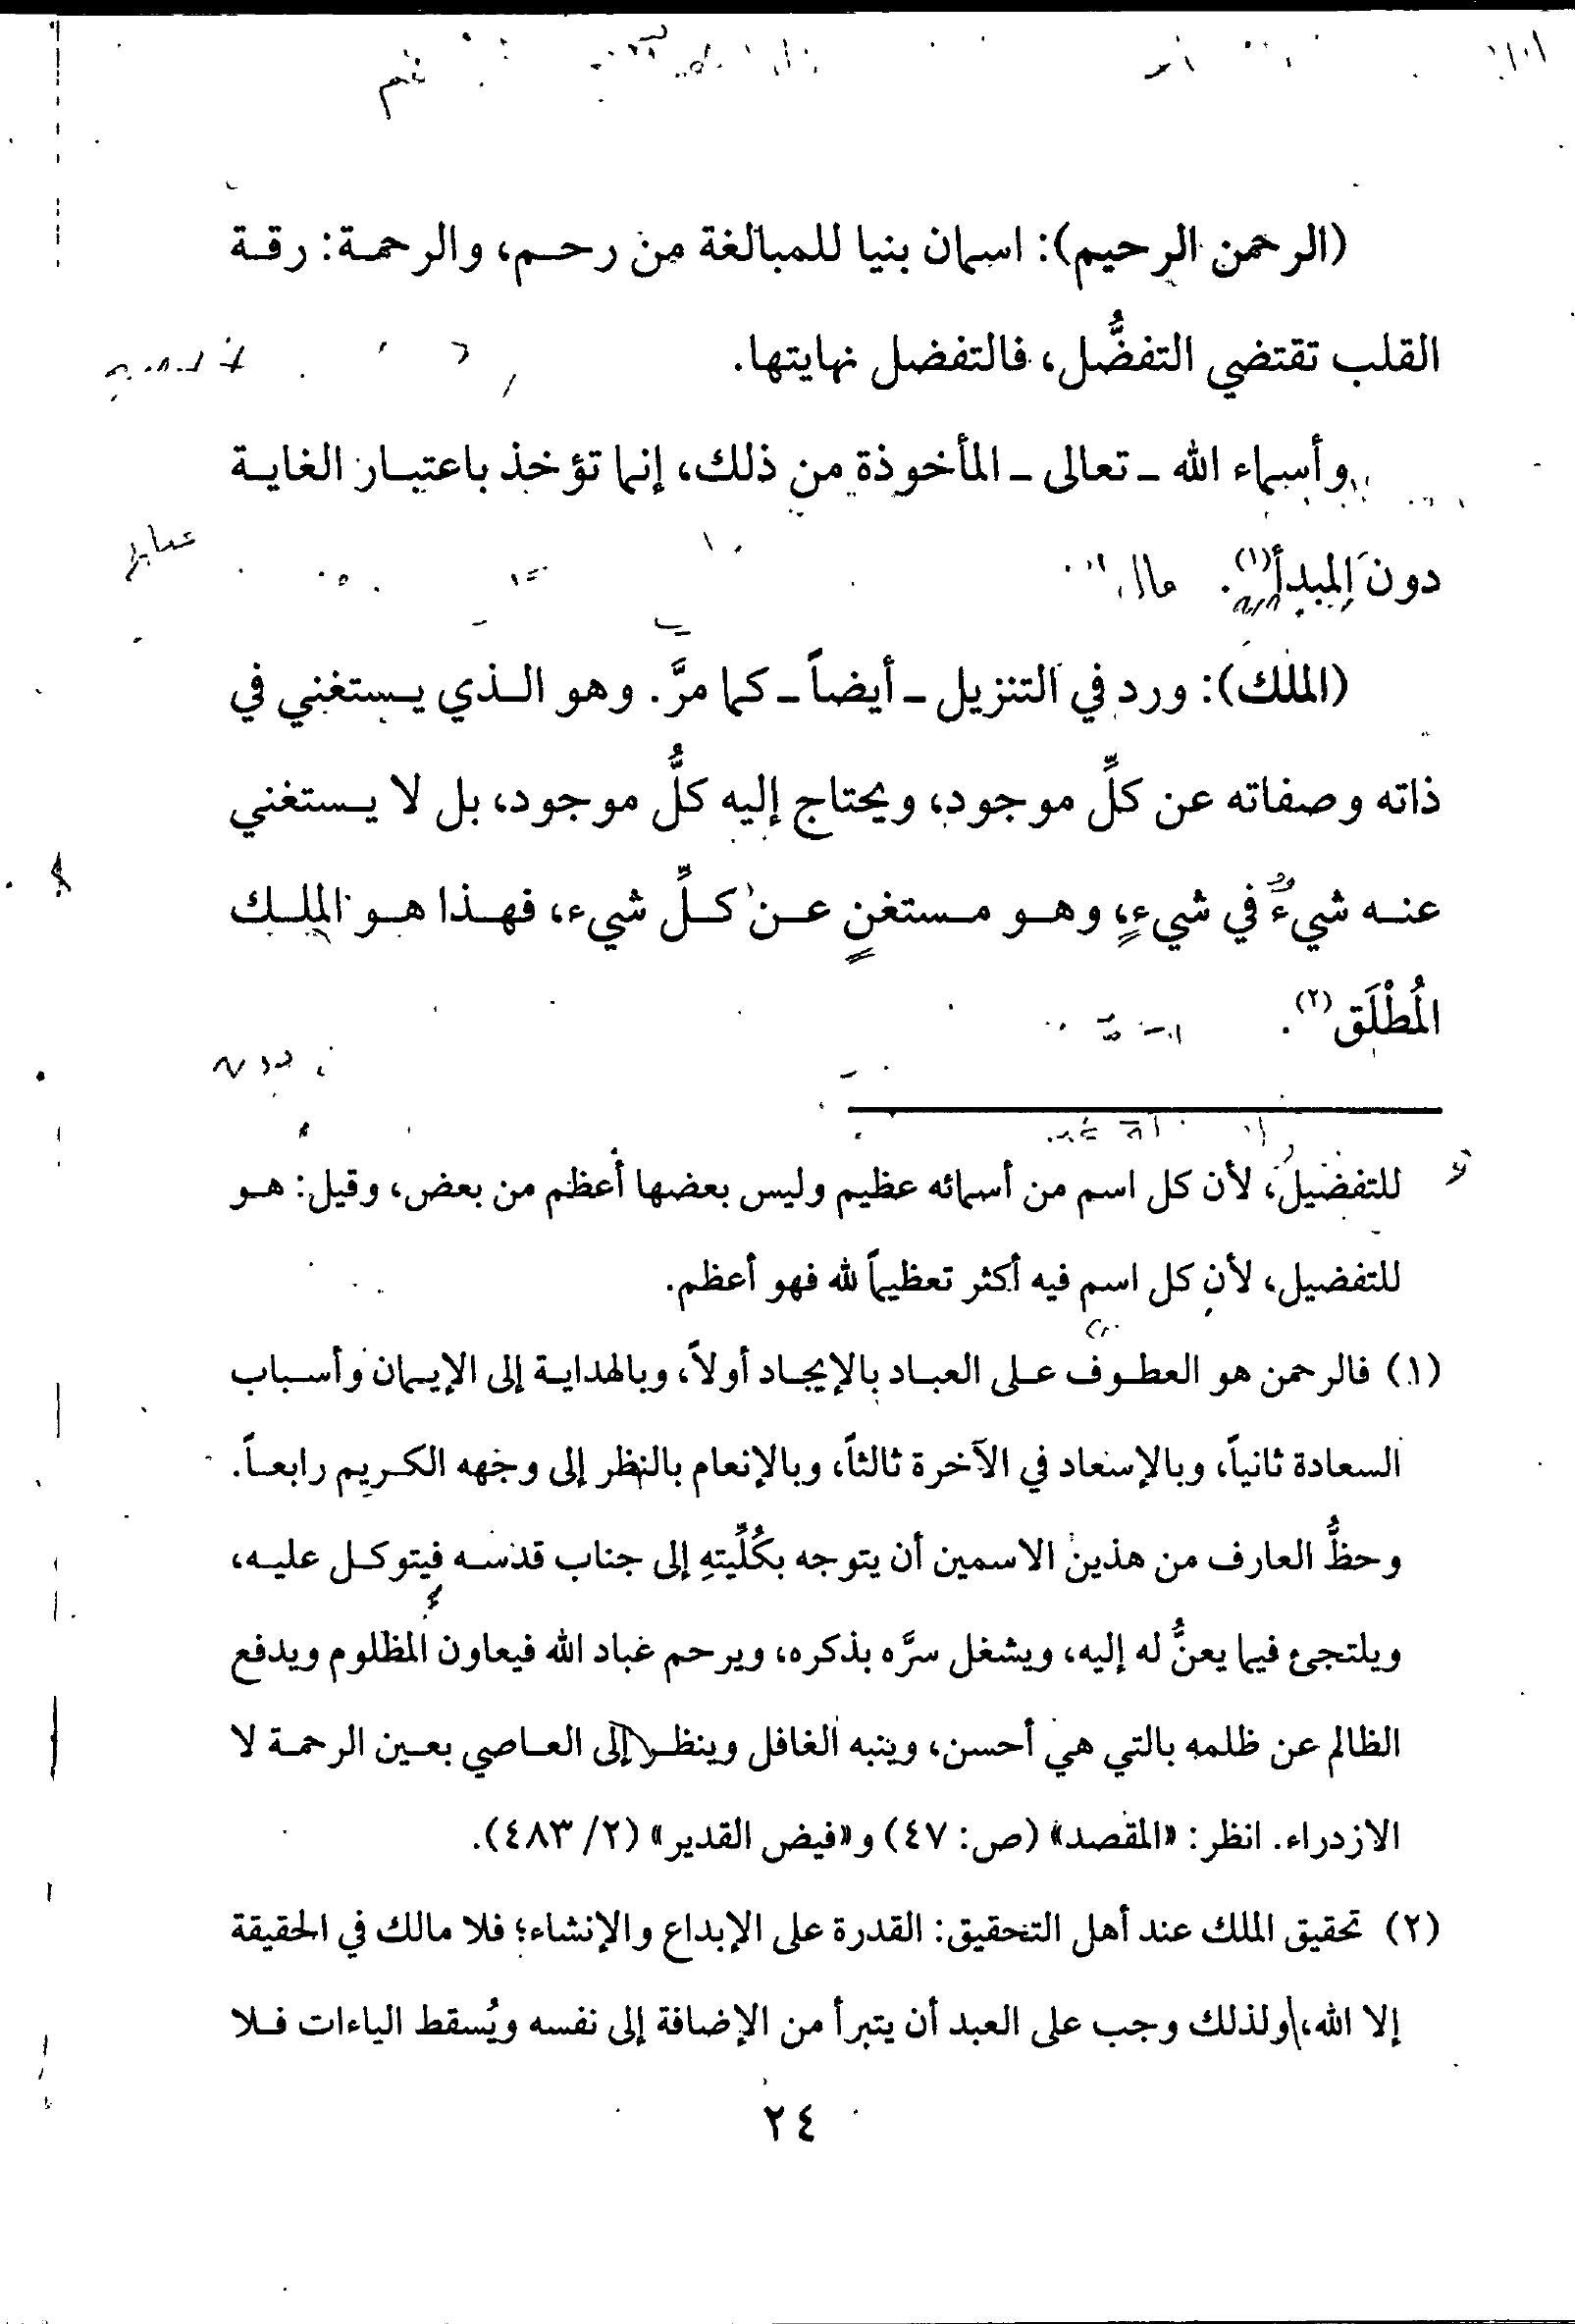 (الرحمن الرحيم): اسمان بنيا للمبالغة من رحم، والرحمة: رقة
القلب تقتضي التفضُّل، فالتفضل نهايتها.
وأسماء الله ـ تعالى ـ المأخوذة من ذلك، إنما تؤخذ باعتبار الغاية
دون المبدأ(١).
(الملك): ورد في التنزيل ـ أيضاً ـ كما مرَّ. وهو الذي يستغني في
ذاته وصفاته عن كلِّ موجود، ويحتاج إليه كلُّ موجود، بل لا يستغني
عنه شيءٌ في شيءٍ، وهو مستغنٍ عن كلِّ شيء، فهذا هو الملك
المُطْلَق(٢).
للتفضيل، لأن كل اسم من أسمائه عظيم وليس بعضها أعظم من بعض، وقيل: هو
للتفضيل، لأن كل اسم فيه أكثر تعظيماً لله فهو أعظم.
(١) فالرحمن هو العطوف على العباد بالإيجاد أولاً، وبالهداية إلى الإيمان وأسباب
السعادة ثانياً، وبالإسعاد في الآخرة ثالثاً، وبالإنعام بالنظر إلى وجهه الكريم رابعاً.
وحظُّ العارف من هذين الاسمين أن يتوجه بكُلِّيتهِ إلى جناب قدسه فيتوكل عليه،
ويلتجئ فيما يعنُّ له إليه، ويشغل سرَّه بذكره، ويرحم عباد الله فيعاون المظلوم ويدفع
الظالم عن ظلمه بالتي هي أحسن، وينبه الغافل وينظر إلى العاصي بعين الرحمة لا
الازدراء. انظر: «المقصد» (ص: ٤٧) و«فيض القدير» (٢/ ٤٨٣).
(٢) تحقيق الملك عند أهل التحقيق: القدرة على الإبداع والإنشاء؛ فلا مالك في الحقيقة
إلا الله، ولذلك وجب على العبد أن يتبرأ من الإضافة إلى نفسه ويُسقط الياءات فلا
٢٤